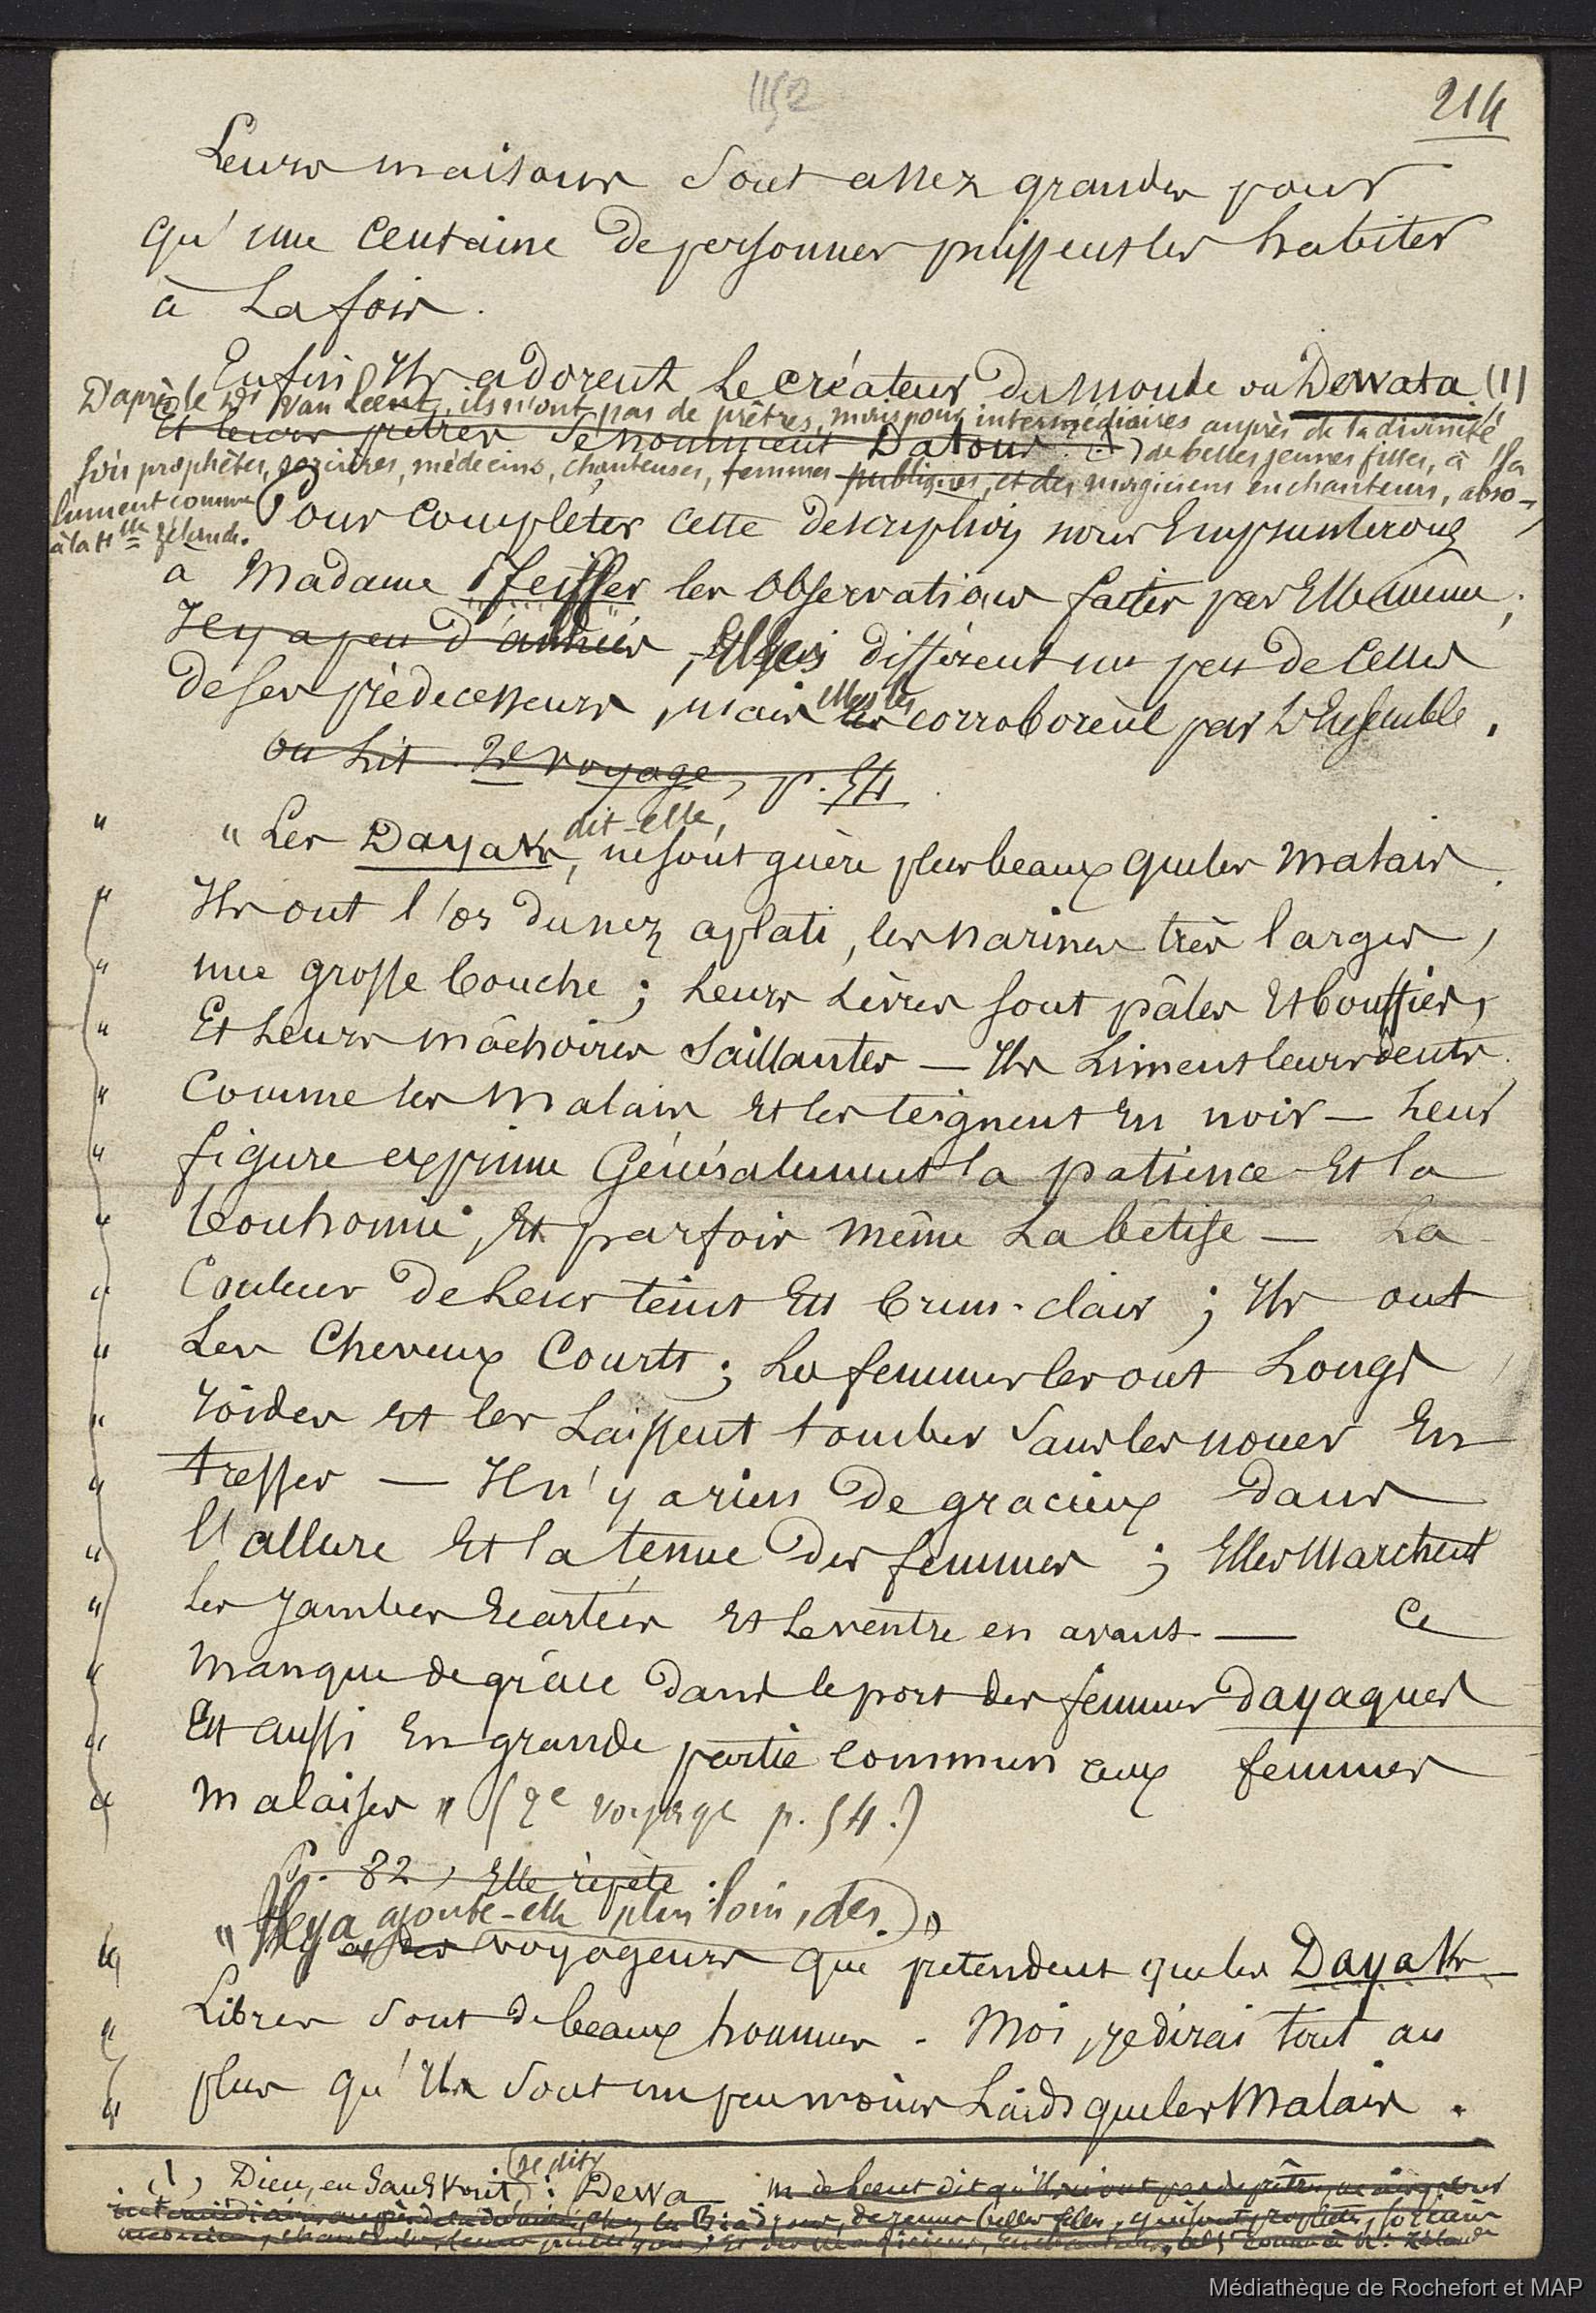 1152
214
Leurs maisons sont assez grandes pour
qu'une centaine de personnes puissent les habiter
à la fois.
Enfin Ils adorent le créateur du monde ou Dewata (1)
D'après le Dr Van Leent, ils n'ont pas de prêtres, mais pour intermédiaires auprès de la divinité
Et leurs prêtres se nomment Datous. (1) de belles jeunes filles, à la
fois prophètes, sorcières, médecins, chanteuses, femmes publiques, et des magiciens enchanteurs, abso-
lument comme
à la Nlle Zélande.
Pour compléter cette description nous Emprunterons
à Madame Pfeiffer les Observations faites par Elle même ;
Il y a peu d'années, Elles diffèrent un peu de celles
de ses prédécesseurs, mais elles les corroborent par L'Ensemble.
on lit 2e voyage, p. 54
" " Les Dayaks, dit-elle, ne sont guère plus beaux que les Malais.
" Ils ont l'os du nez aplati, les narines très larges,
" une grosse bouche ; Leurs Lèvres sont pâles Et bouffies,
" Et Leurs mâchoires Saillantes — Ils Liment leurs dents
" Comme les Malais et les teignent En noir — Leur
" figure exprime Généralement la patience Et la
" bonhomie, Et parfois même La bêtise — La
" Couleur de Leur teint Est brun-clair ; Ils ont
" Les Cheveux Courts ; Les femmes les ont Longs,
" roides et les Laissent tomber Sans les nouer En
" tresses — Il n'y a rien de gracieux dans
" l'allure Et la tenue des femmes ; Elles Marchent
" les Jambes Ecartées Et Le ventre en avant — Ce
" manque de grâce dans le port des femmes dayaques
" Est aussi En grande partie commun aux femmes
" malaises " (2e voyage p. 54.)
P. 82, Elle répète :
" " Il y a ajoute-elle plus loin, des voyageurs que prétendent que les Dayaks
" Libres sont de beaux hommes. Moi, je dirai tout au
" plus qu'Ils sont un peu moins Laids que les Malais.
(1) Dieu, en Sanskrit (se dit) : Dewa M. de Leent dit qu'Ils n'ont pas de prêtres, mais pour
intermédiaires auprès de la divinité, chez les , de jeunes belles filles, qui sont prophètes, sorcières
médecins, chanteuses, femmes publiques ; Et des Magiciens, Enchanteurs, comme à N. Zélande
Médiathèque de Rochefort et MAP